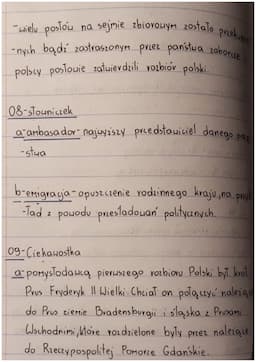 -wielu posłów na sejmie zbiorowym zostało
-nych bądź zastraszonym przez państwa zaborcze
polscy posłowie zatwierdzili rozbiór polski.
08-słowniczek
a-ambasador-najwyższy przedstawiciel danego
-stwa
b-emigracja-opuszczenie rodzinnego kraju, na
-ład z powodu prześladowań politycznych.
09-Ciekawostka
a-pomysłodawcą pierwszego rozbioru Polski był król
Prus Fryderyk II Wielki. Chciał on połączyć należące
do Prus ziemie Bradenburgii i śląska z Prusami
Wschodnimi, które rozdzielone były przez należące
do Rzeczypospolitej Pomorze Gdańskie.